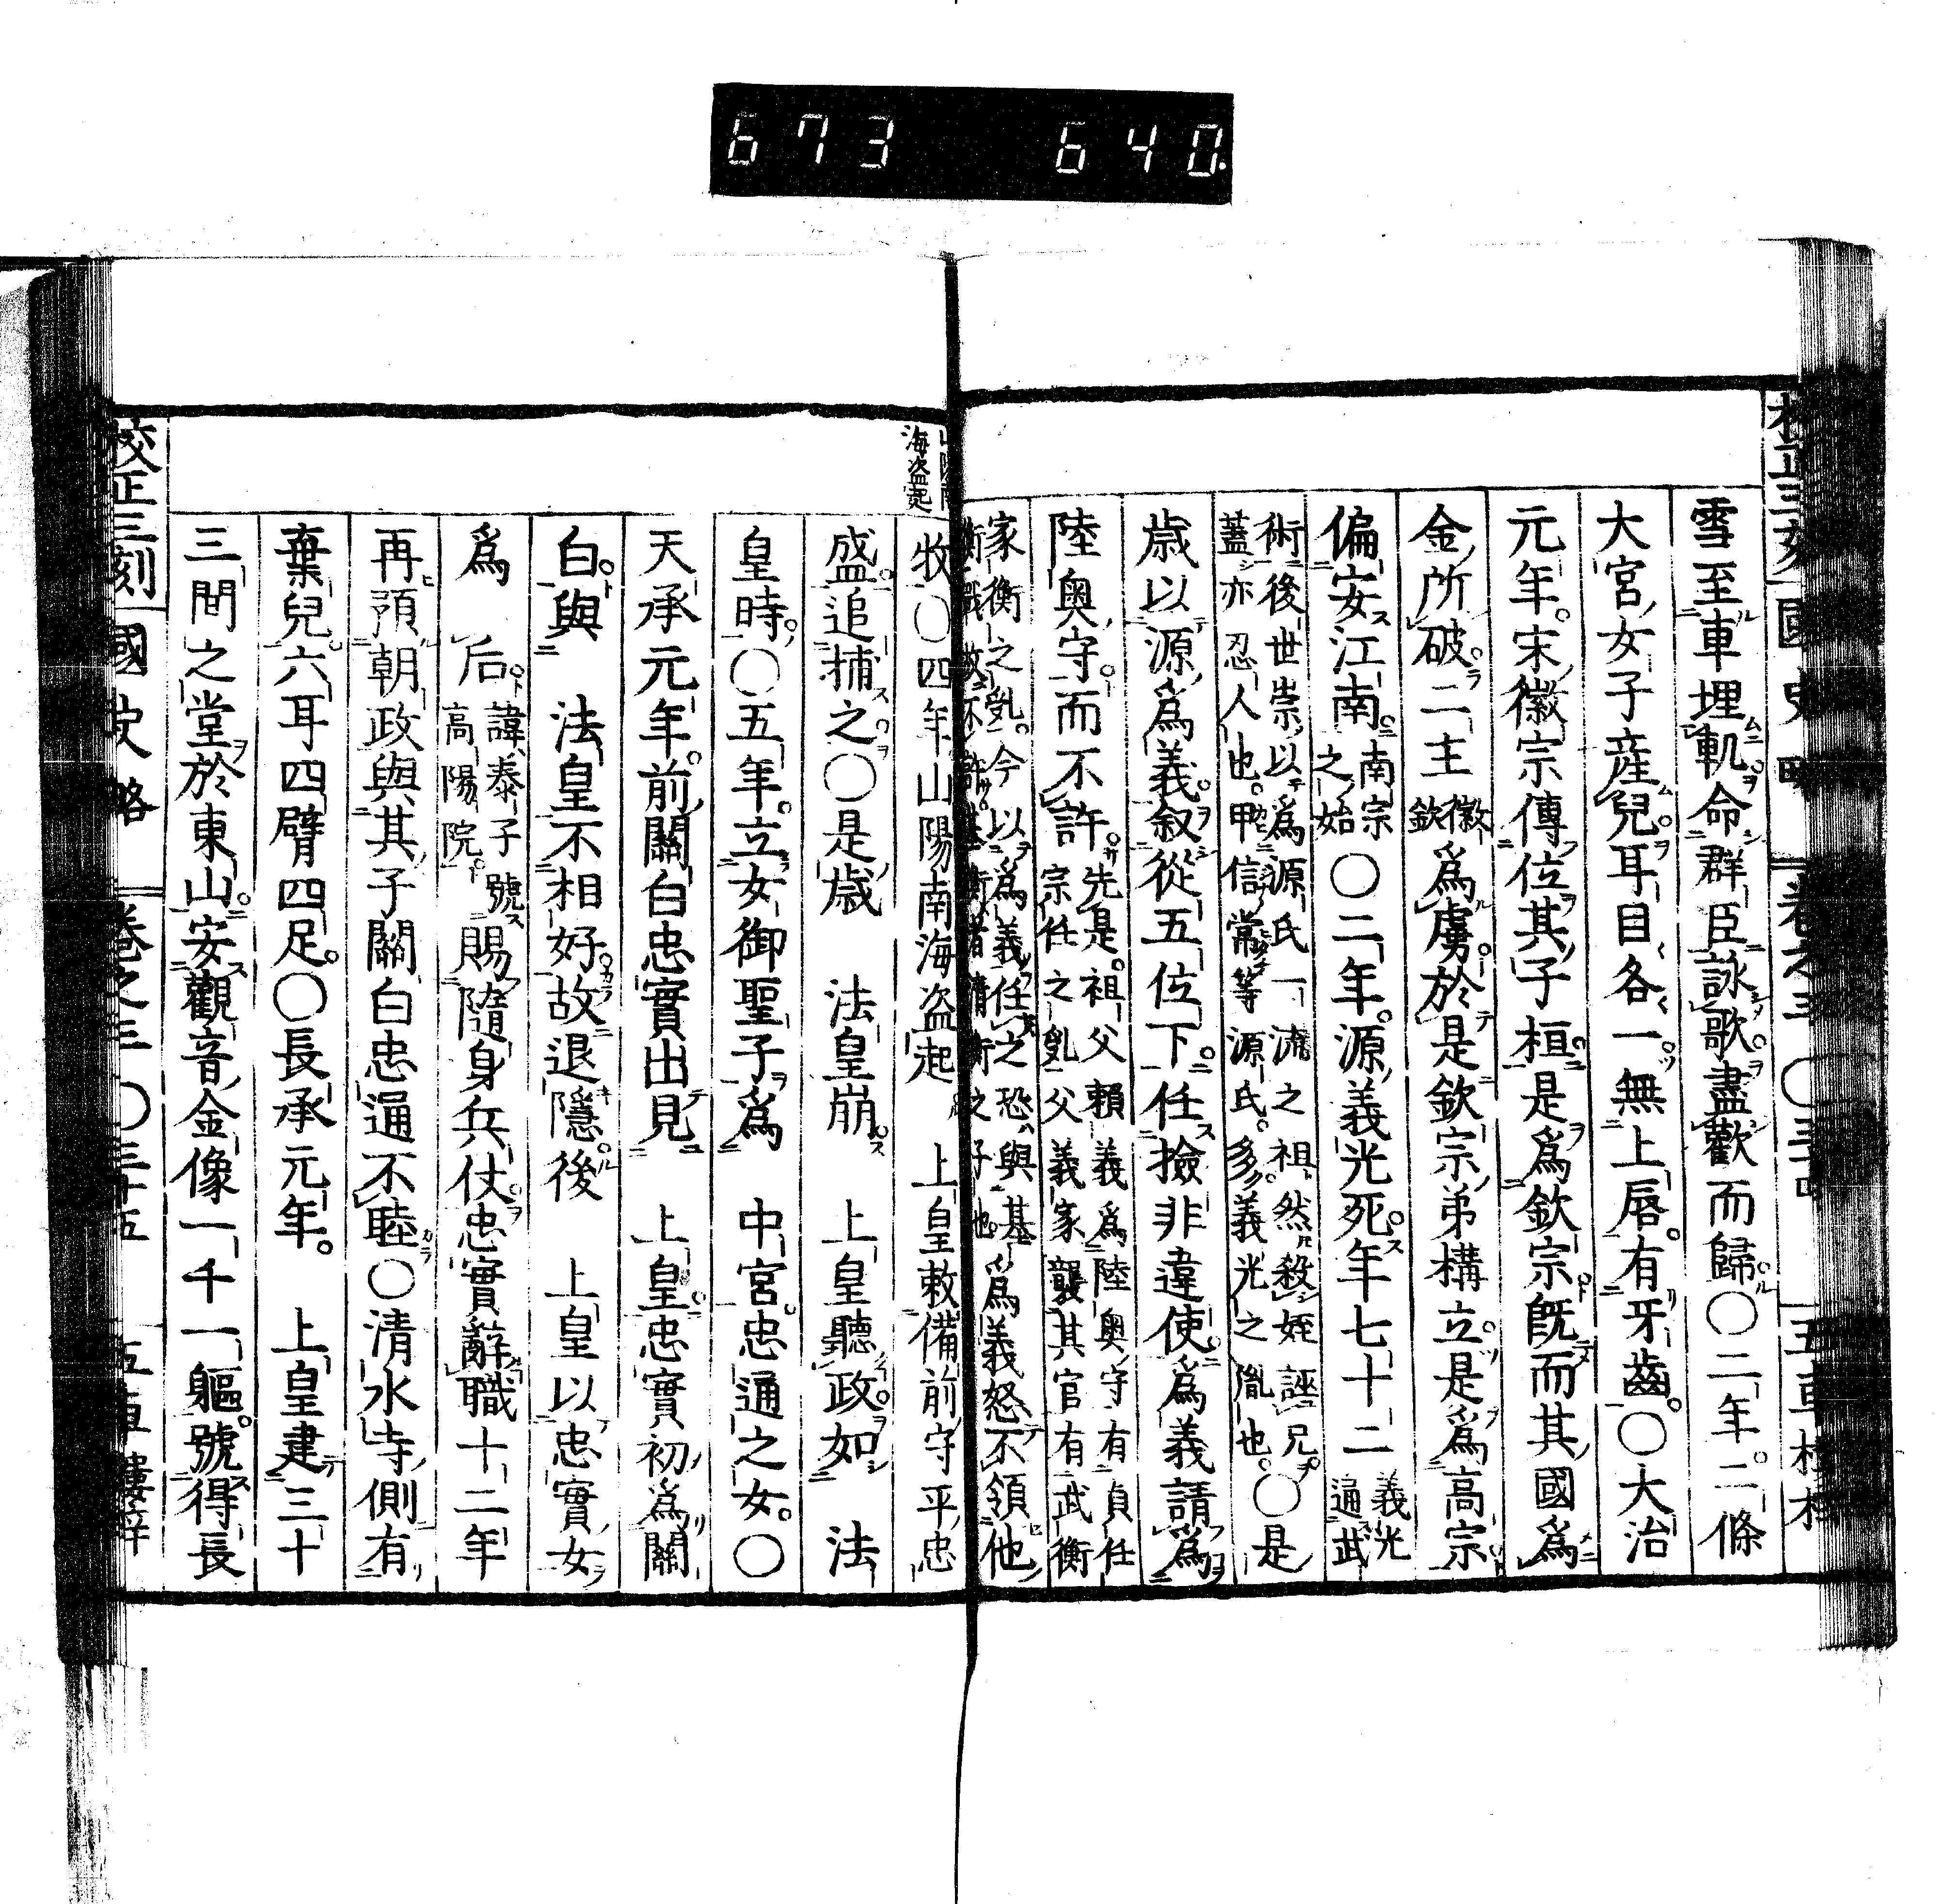 673 640
雪至車埋軏命群臣詠歌盡歡而歸〇二年二條
大宮女子産兒耳目各一無上唇有牙齒〇大治
元年宋徽宗傳位其子桓是爲欽宗既而其國爲
金所破二主徽欽爲虜於是欽宗弟構立是爲高宗
偏安江南南宗之始〇二年源義光死年七十二義光通武
術後世崇以爲源氏一流之祖然殺姪誣兄
蓋亦忍人也甲信常等源氏多義光之胤也〇是
歳以源爲義叙從五位下任撿非違使爲義請爲
陸奥守而不許先是祖父賴義爲陸奥守有貞任宗任之亂父義家襲其官有武衡
家衡之亂今以爲義任之恐與基爲義怒不領他
衡戰故不許基衡者清衡之子也
海盗起
牧〇四年山陽南海盗起 上皇敕備前守平忠
盛追捕之〇是歳 法皇崩 上皇聽政如 法
皇時〇五年立女御聖子爲 中宮忠通之女〇
天承元年前關白忠實出見 上皇忠實初爲關
白與 法皇不相好故退隱後 上皇以忠實女
爲 后諱泰子號高陽院賜隨身兵仗忠實辭職十二年
再預朝政與其子關白忠通不睦〇清水寺側有
棄兒六耳四臂四足〇長承元年 上皇建三十
三間之堂於東山安觀音金像一千一軀號得長
校正三刻 國史略 卷之三 〇三十五 五車樓梓